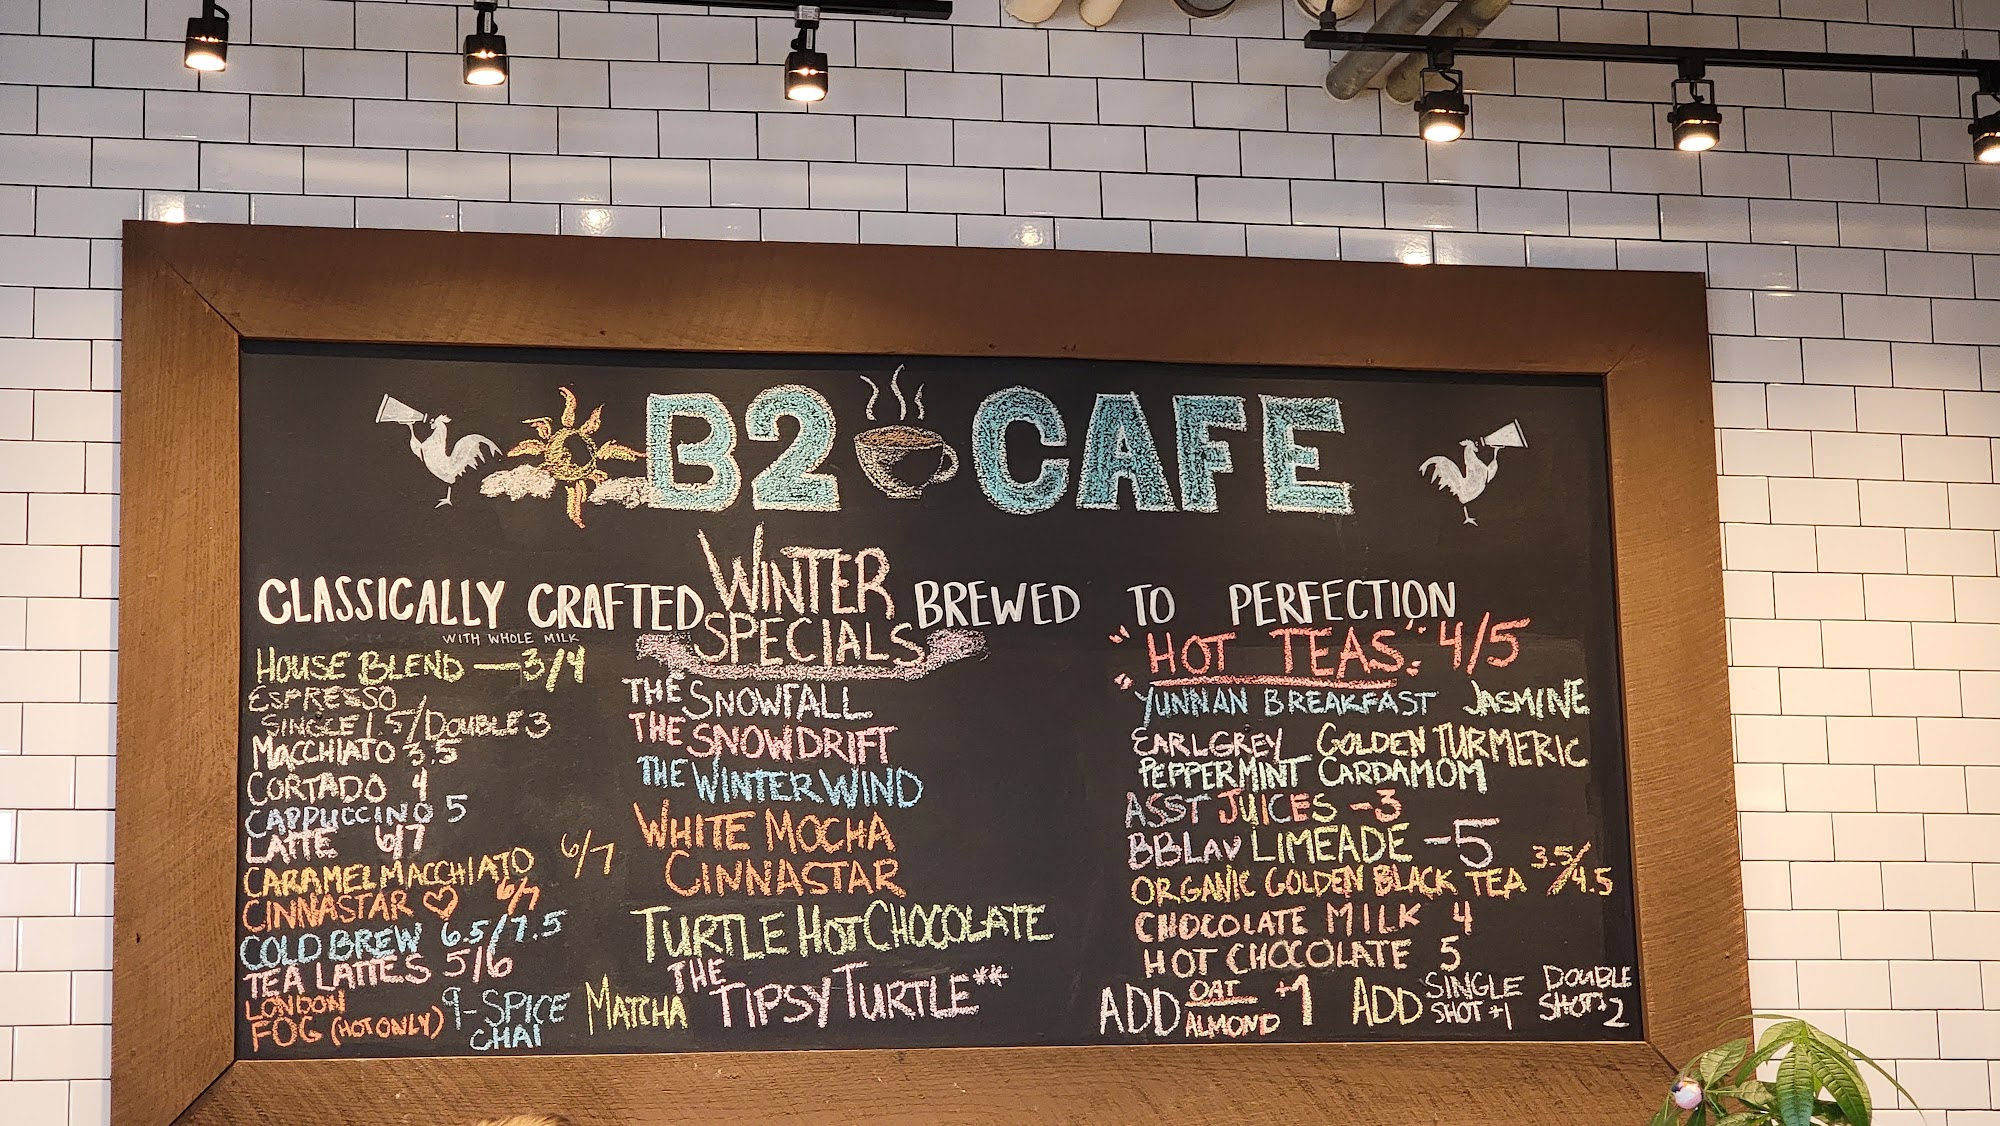 B2 CAFE
CLASSICALLY CRAFTED
WITH WHOLE MILK
HOUSE BLEND — 3/4
ESPRESSO
SINGLE 1.5/DOUBLE 3
MACCHIATO 3.5
CORTADO 4
CAPPUCCINO 5
LATTE 6/7
CARAMEL MACCHIATO 6/7
CINNASTAR ♡ 6/7
COLD BREW 6.5/7.5
TEA LATTES 5/6
LONDON
FOG (HOT ONLY)
9-SPICE
CHAI
MATCHA
WINTER
SPECIALS
THE SNOWFALL
THE SNOWDRIFT
THE WINTER WIND
WHITE MOCHA
CINNASTAR
TURTLE HOT CHOCOLATE
THE
TIPSY TURTLE**
BREWED TO PERFECTION
"HOT TEAS" 4/5
YUNNAN BREAKFAST JASMINE
EARL GREY GOLDEN TURMERIC
PEPPERMINT CARDAMOM
ASST JUICES - 3
BBLAV LIMEADE - 5
ORGANIC GOLDEN BLACK TEA 3.5/4.5
CHOCOLATE MILK 4
HOT CHOCOLATE 5
ADD OAT ALMOND +1
ADD SINGLE SHOT +1 DOUBLE SHOT +2